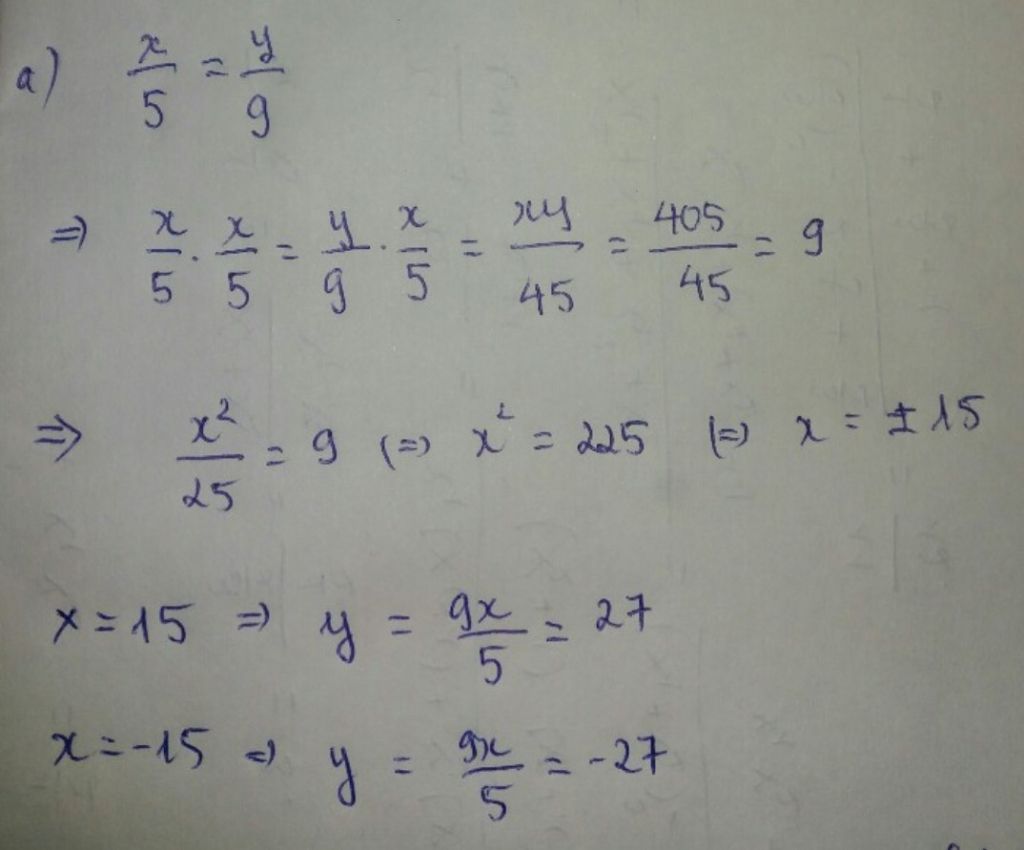 a) x/5 = y/9
⇒ x/5 . x/5 = y/9 . x/5 = xy/45 = 405/45 = 9
⇒ x²/25 = 9 (=) x² = 225 (=) x = ±15
x = 15 ⇒ y = 9x/5 = 27
x = -15 ⇒ y = 9x/5 = -27